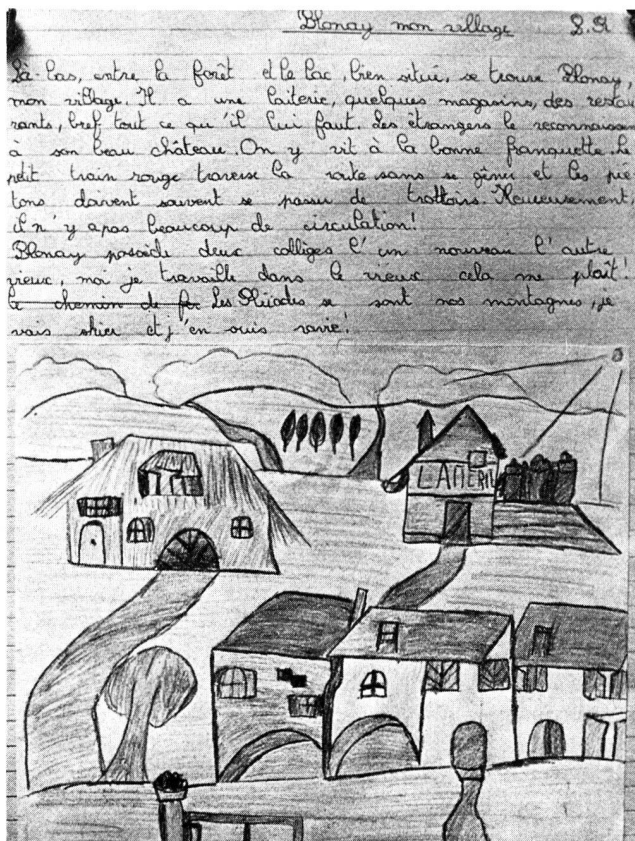 Blonay mon village S.A
Là-bas, entre la forêt et le lac, bien situé, se trouve Blonay,
mon village. Il a une laiterie, quelques magasins, des restau
rants, bref tout ce qu'il lui faut. Les étrangers le reconnaissen
à son beau château. On y vit à la bonne franquette. Le
petit train rouge traverse la route sans se gêner et les pié
tons doivent souvent se passer de trottoirs. Heureusement,
il n'y a pas beaucoup de circulation!
Blonay possède deux collèges l'un nouveau l'autre
vieux, moi je travaille dans le vieux cela me plaît!
Le chemin de fer Les Pléiades se sont nos montagnes, je
vais skier et j'en suis ravie!
LAITERIE